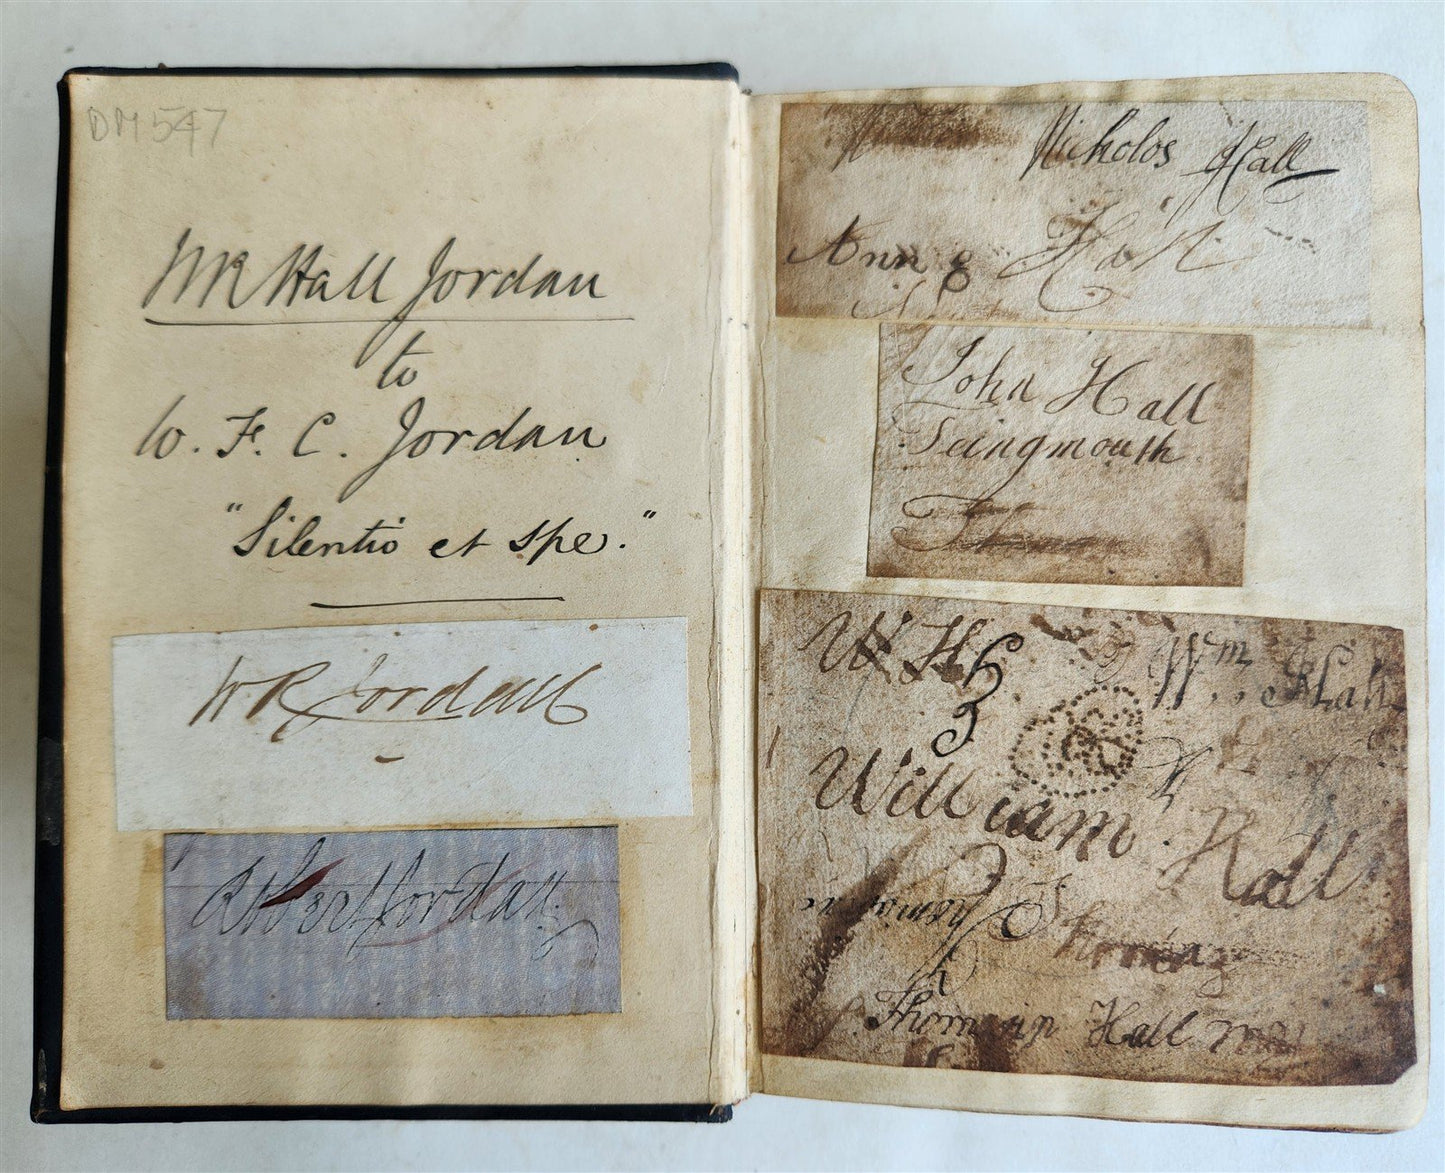 DM 547
WR Hall Jordan
to
W. F. C. Jordan
"Silentio et spe."
WR Jordan
Robert Jordan
Nicholos Hall
Ann Hall
John Hall
Teingmouth
W H
Wm Hall
William Hall
Hall